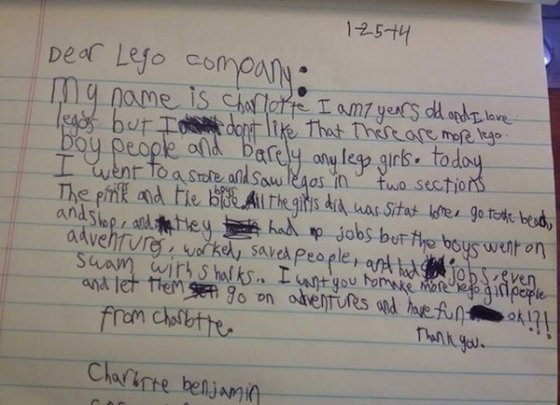 1-25-14
Dear Lego company:
My name is Charlotte I am 7 years old and I love
legos but I don't like that there are more lego
boy people and barely any lego girls. today
I went to a store and saw legos in two sections
The pink girls and the blue boys All the girls did was sit at home, go to the beach,
and shop, and they had no jobs but the boys went on
adventures, worked, saved people, and had jobs, even
swam with sharks.. I want you to make more lego girl people
and let them go on adventures and have fun ok!?!
from charlotte.
Thank you.
Charlotte benjamin